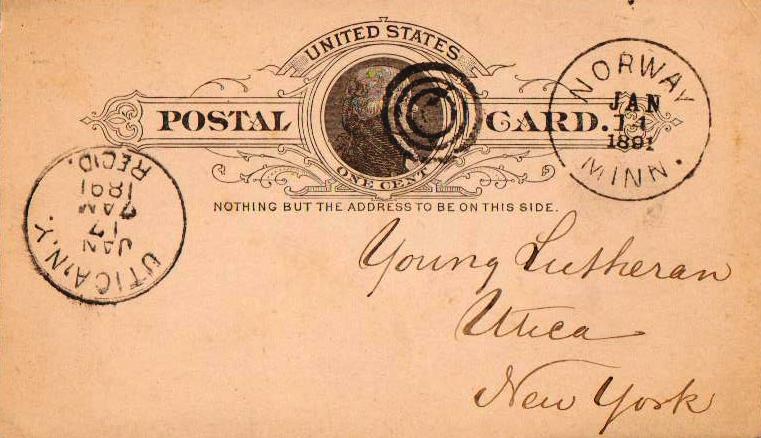 UNITED STATES
POSTAL CARD.
ONE CENT
NOTHING BUT THE ADDRESS TO BE ON THIS SIDE.
NORWAY
JAN
1891
MINN.
UTICA, N.Y.
JAN
17
7 AM
1891
REC'D.
Young Lutheran
Utica
New York